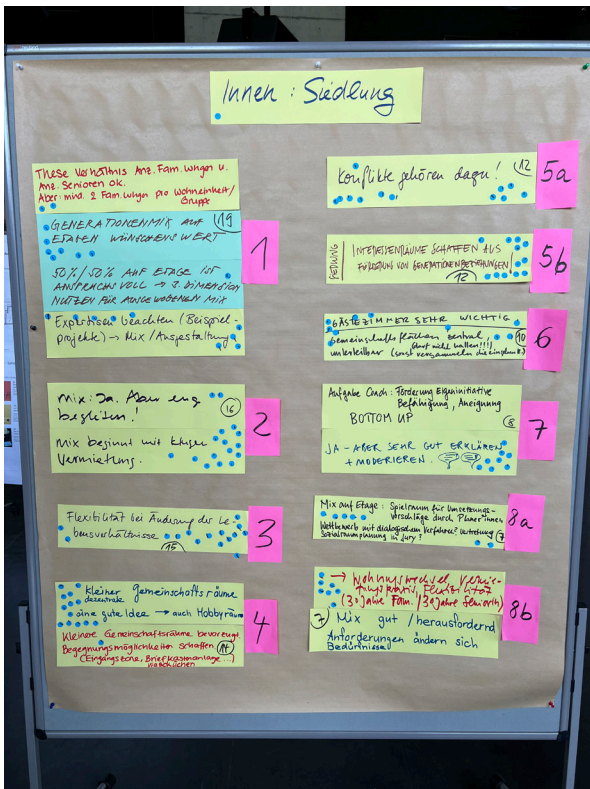 Innen : Siedlung
These Verhältnis Anz. Fam. Whgen u.
Anz. Senioren ok.
Aber: mind. 2 Fam. Whgen pro Wohneinheit/
Gruppe
GENERATIONENMIX AUF 19
ETAGEN WÜNSCHENSWERT
50%/50% AUF ETAGE IST
ANSPRUCHSVOLL → 3. DIMENSION
NUTZEN FÜR AUSGEWOGENEN MIX
Expertisen beachten (Beispiel-
projekte) → Mix / Ausgestaltung
1
Mix: Ja. Aber eng
begleiten! 16
Mix beginnt mit kluger
Vermietung.
2
Flexibilität bei Änderung der Le-
bensverhältnisse 15
3
kleiner Gemeinschaftsräume
dezentrale
eine gute Idee → auch Hobbyräum
Kleinere Gemeinschaftsräume bevorzugt.
Begegnungsmöglichkeiten schaffen 14
(Eingangszone, Briefkastenanlage...)
Waschküchen
4
Konflikte gehören dazu! 12
5a
INTERESSENRÄUME SCHAFFEN ALS
FÖRDERUNG VON GENERATIONENBEZIEHUNGEN!
12
5b
GÄSTEZIMMER SEHR WICHTIG
Gemeinschaftsflächen zentral, 10
(dort nicht wallen!!!!)
unterteilbar (sonst versammeln die einzelnen
6
Aufgabe Coach: Förderung Eigeninitiative
Befähigung, Aneignung
BOTTOM UP 8
JA – ABER SEHR GUT ERKLÄREN
+ MODERIEREN.
7
Mix auf Etage: Spielraum für Umsetzungs-
vorschläge durch Planer*innen
Wettbewerb mit dialogischem Verfahren? Vertretung
Sozialraumplanung in Jury? 7
8a
→ Wohnungswechsel, Vermie-
tungspraxis, Flexibilität
(30 Jahre Fam. / 30 Jahre Senioren)
7 Mix gut / herausfordernd
Anforderungen ändern sich
Bedürfnisse
8b